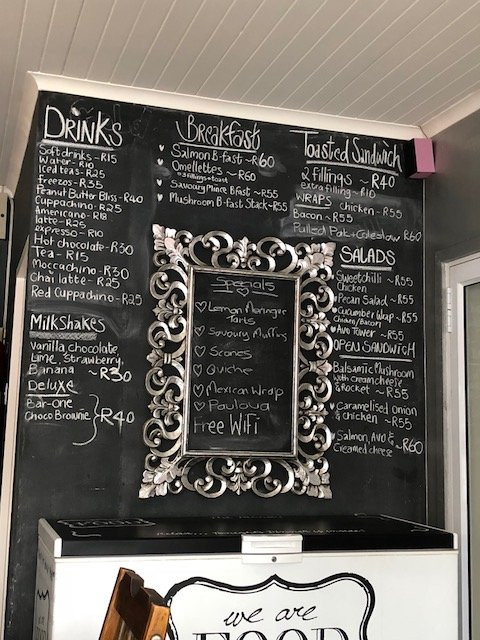 DRiNKS
Soft drinks - R15
Water - R10
Iced teas - R25
Freezos - R35
Peanut Butter Bliss - R40
Cuppachino - R25
Americano - R18
latte - R25
expresso - R10
Hot chocolate - R30
Tea - R15
Moccachino - R30
Chai latte - R25
Red Cuppachino - R25
MilkShakes
Vanilla chocolate,
Lime, Strawberry,
Banana ~ R30
Deluxe
Bar-One
Choco Brownie R40
Breakfast
Salmon B-fast ~ R60
Omellettes ~ R60
*3 fillings + toast
Savoury Mince Bfast ~ R55
Mushroom B-fast Stack ~ R55
Specials
Lemon Maringer
Tarts
Savoury Muffins
Scones
Quiche
Mexican Wrap
Pavlova
Free WiFi
Toasted Sandwich
2 fillings ~ R40
extra filling ~ R10
WRAPS chicken ~ R55
Bacon ~ R55
Pulled Pork + Coleslow R60
SALADS
Sweetchilli ~ R55
Chicken
Pecan Salad ~ R55
Cucumber Wrap ~ R55
Chicken/Bacon
Avo Tower ~ R55
OPEN SANDWiCH
Balsamic Mushroom
with creamcheese
& Rocket ~ R55
Caramelised Onion
& Chicken ~ R55
Salmon, Avo & ~ R60
Creamed cheese
FOOD
we are
FOOD